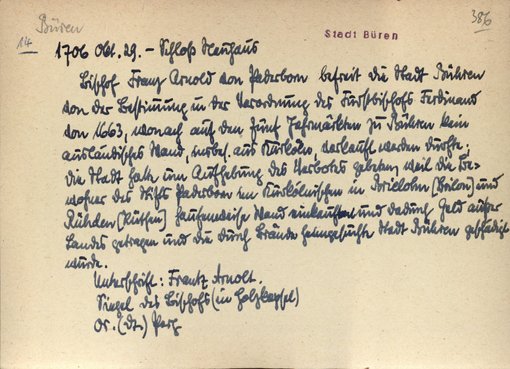 Büren
386
14
Stadt Büren
1706 Okt. 29. - Schloß Neuhaus
Bischof Franz Arnold von Paderborn befreit die Stadt Bühren
von der Bestimmung in der Verordnung des Fürstbischofs Ferdinand
von 1663, wonach auf den fünf Jahrmärkten zu Bühren kein
ausländisches Wand, insbes. aus Kurköln, verkauft werden dürfte;
die Stadt hatte um Aufhebung des Verbotes gebeten, weil die Be-
wohner des Stifts Paderborn im Kurkölnischen in Brielohn (Brilon) und
Rühden (Rüthen) haufenweise Wand einkauften und dadurch Geld außer
Landes getragen und die durch Brände heimgesuchte Stadt Bühren geschädigt
würde.
Unterschrift: Frantz Arnolt.
Siegel des Bischofs (in Holzkapsel)
Or. (dt.) Perg